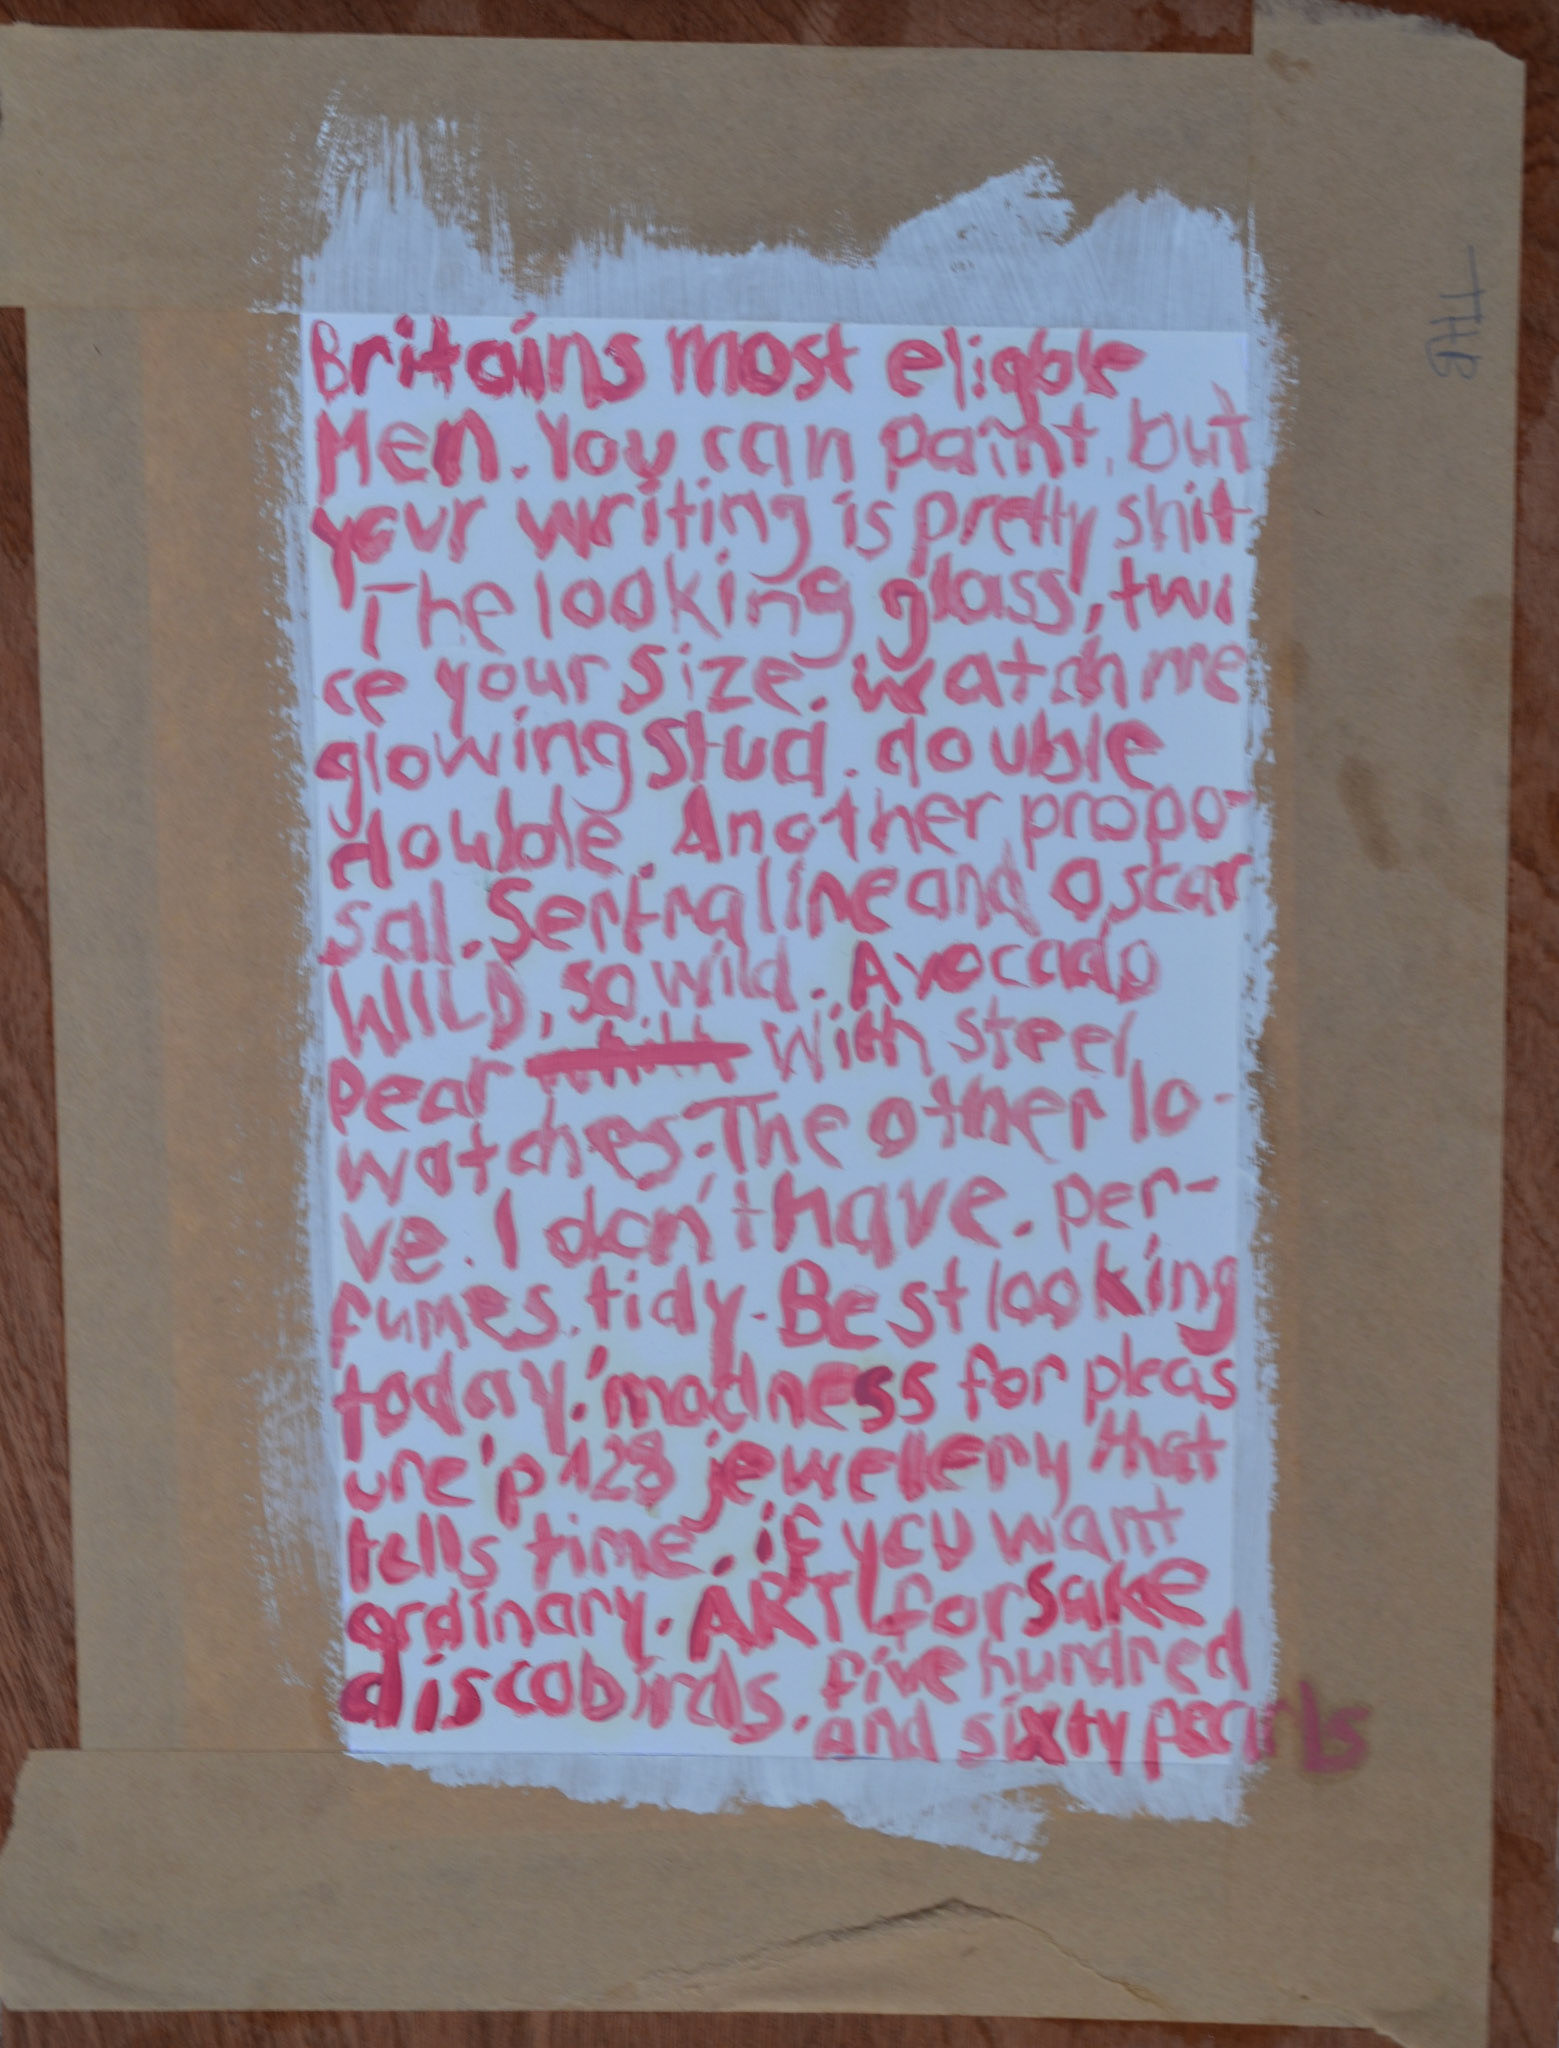 Britains most eligble
Men. You can paint, but
your writing is pretty shit
The looking glass, twi
ce your size. watch me
glowing stud. double
double. Another propo-
sal. Sertraline and oscar
WILD, so wild. Avocado
pear with steel
watches. The other lo-
ve. I don't have. per-
fumes. tidy. Best looking
today. 'madness for pleas
ure' p128 jewellery that
tells time. if you want
ordinary. ART forsake
discobirds. five hundred
and sixty pearls